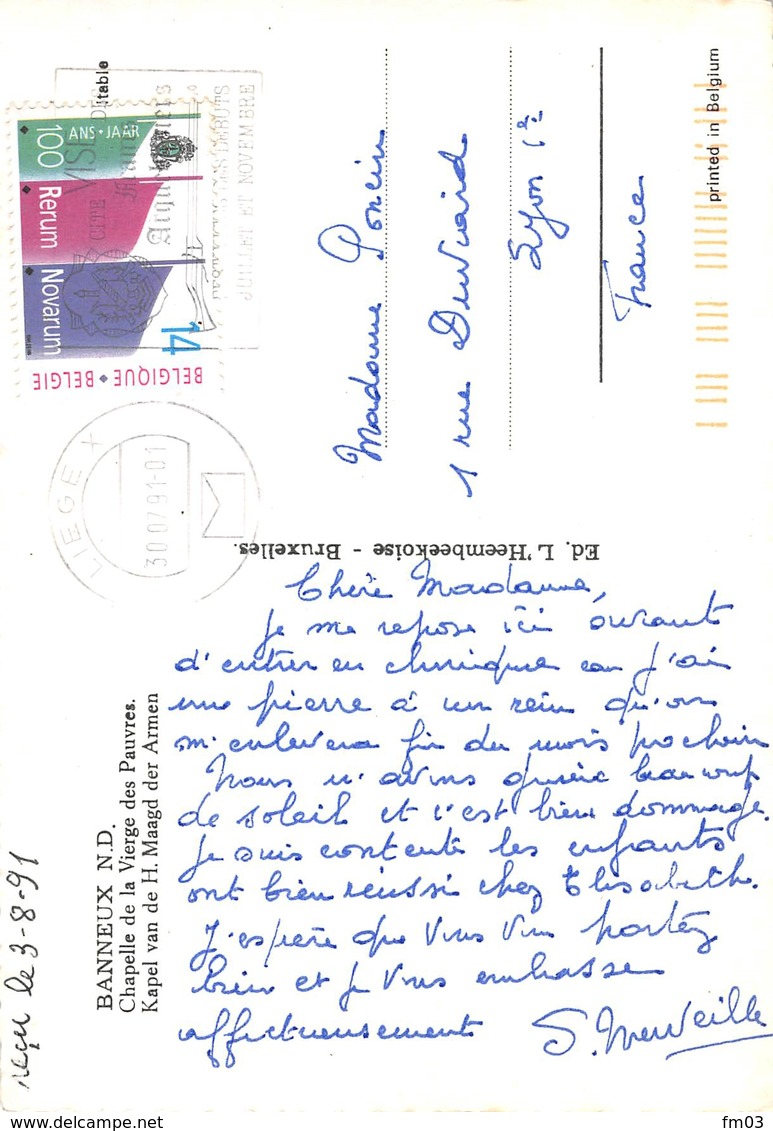 100 ANS • JAAR
Rerum Novarum
14
BELGIQUE • BELGIE
CITE
JUILLET ET NOVEMBRE
LIEGE X
30.07.91-01
table
printed in Belgium
Madame Poncin
1 rue Duviard
Lyon 1er
France
Ed. L'Heembeekoise - Bruxelles.
BANNEUX N.D.
Chapelle de la Vierge des Pauvres.
Kapel van de H. Maagd der Armen
reçu le 3-8-91
Chère Madame,
Je me repose ici avant
d'entrer en clinique car j'ai
une pierre à un rein qu'on
m'enlevera fin du mois prochain
Nous n'avons guère beaucoup
de soleil et c'est bien dommage.
Je suis contente les enfants
ont bien réussi chez Elisabeth.
J'espère que vous vous portez
bien et je vous embrasse
affectueusement S. Merveille
fm03
delcampe.net